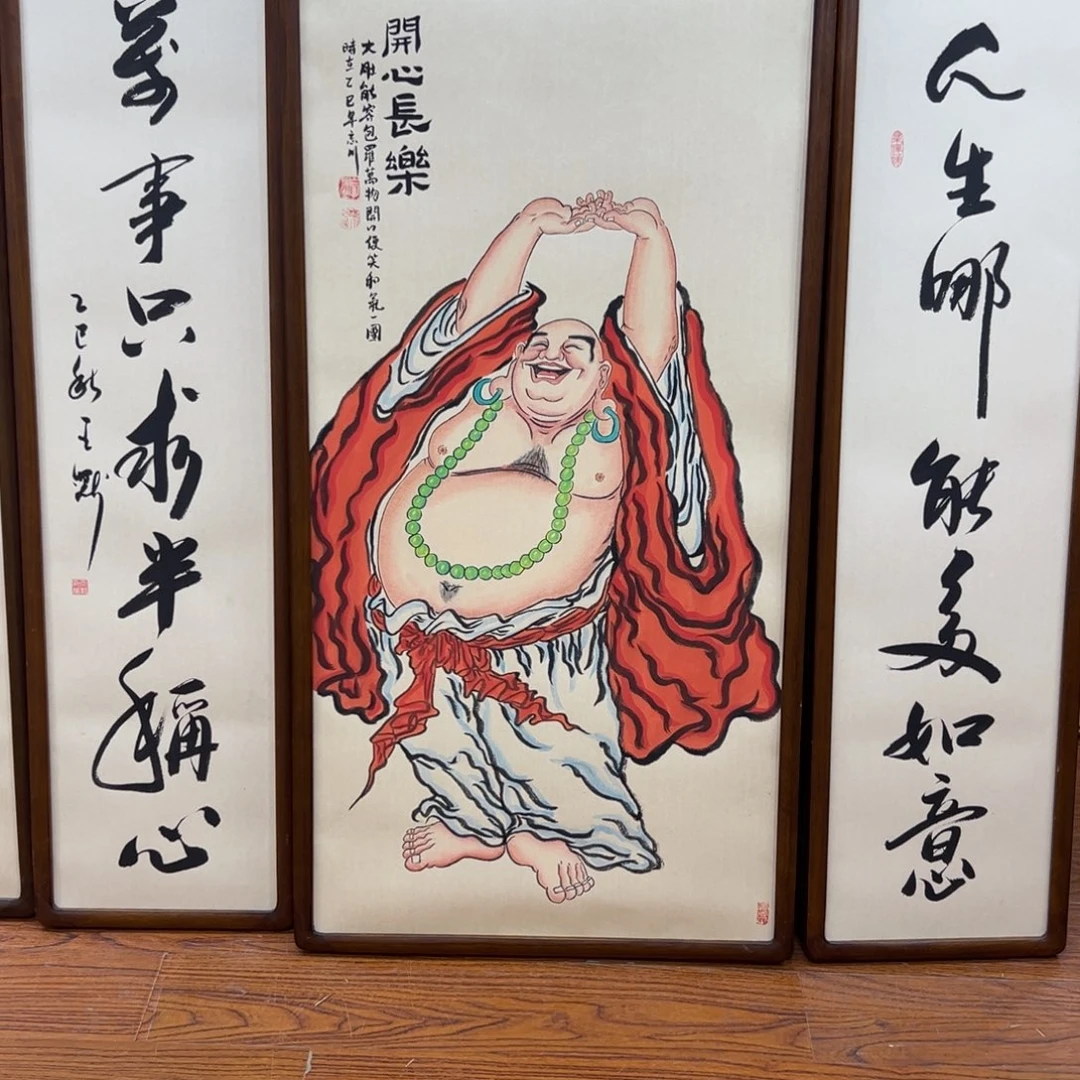 人生哪能多如意
開心長樂
大肚能容包羅萬物開口便笑和氣一團
時在乙巳年
萬事只求半稱心
乙巳秋王